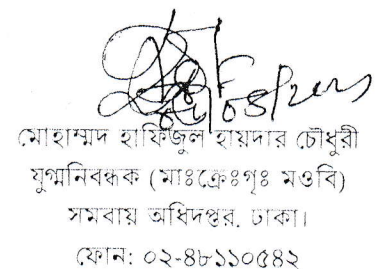 মোহাম্মদ হাফিজুল হায়দার চৌধুরী
যুগ্মনিবন্ধক (মাঃক্রেঃগৃঃ মওবি)
সমবায় অধিদপ্তর, ঢাকা।
ফোন: ০২-৪৮১১০৫৪২